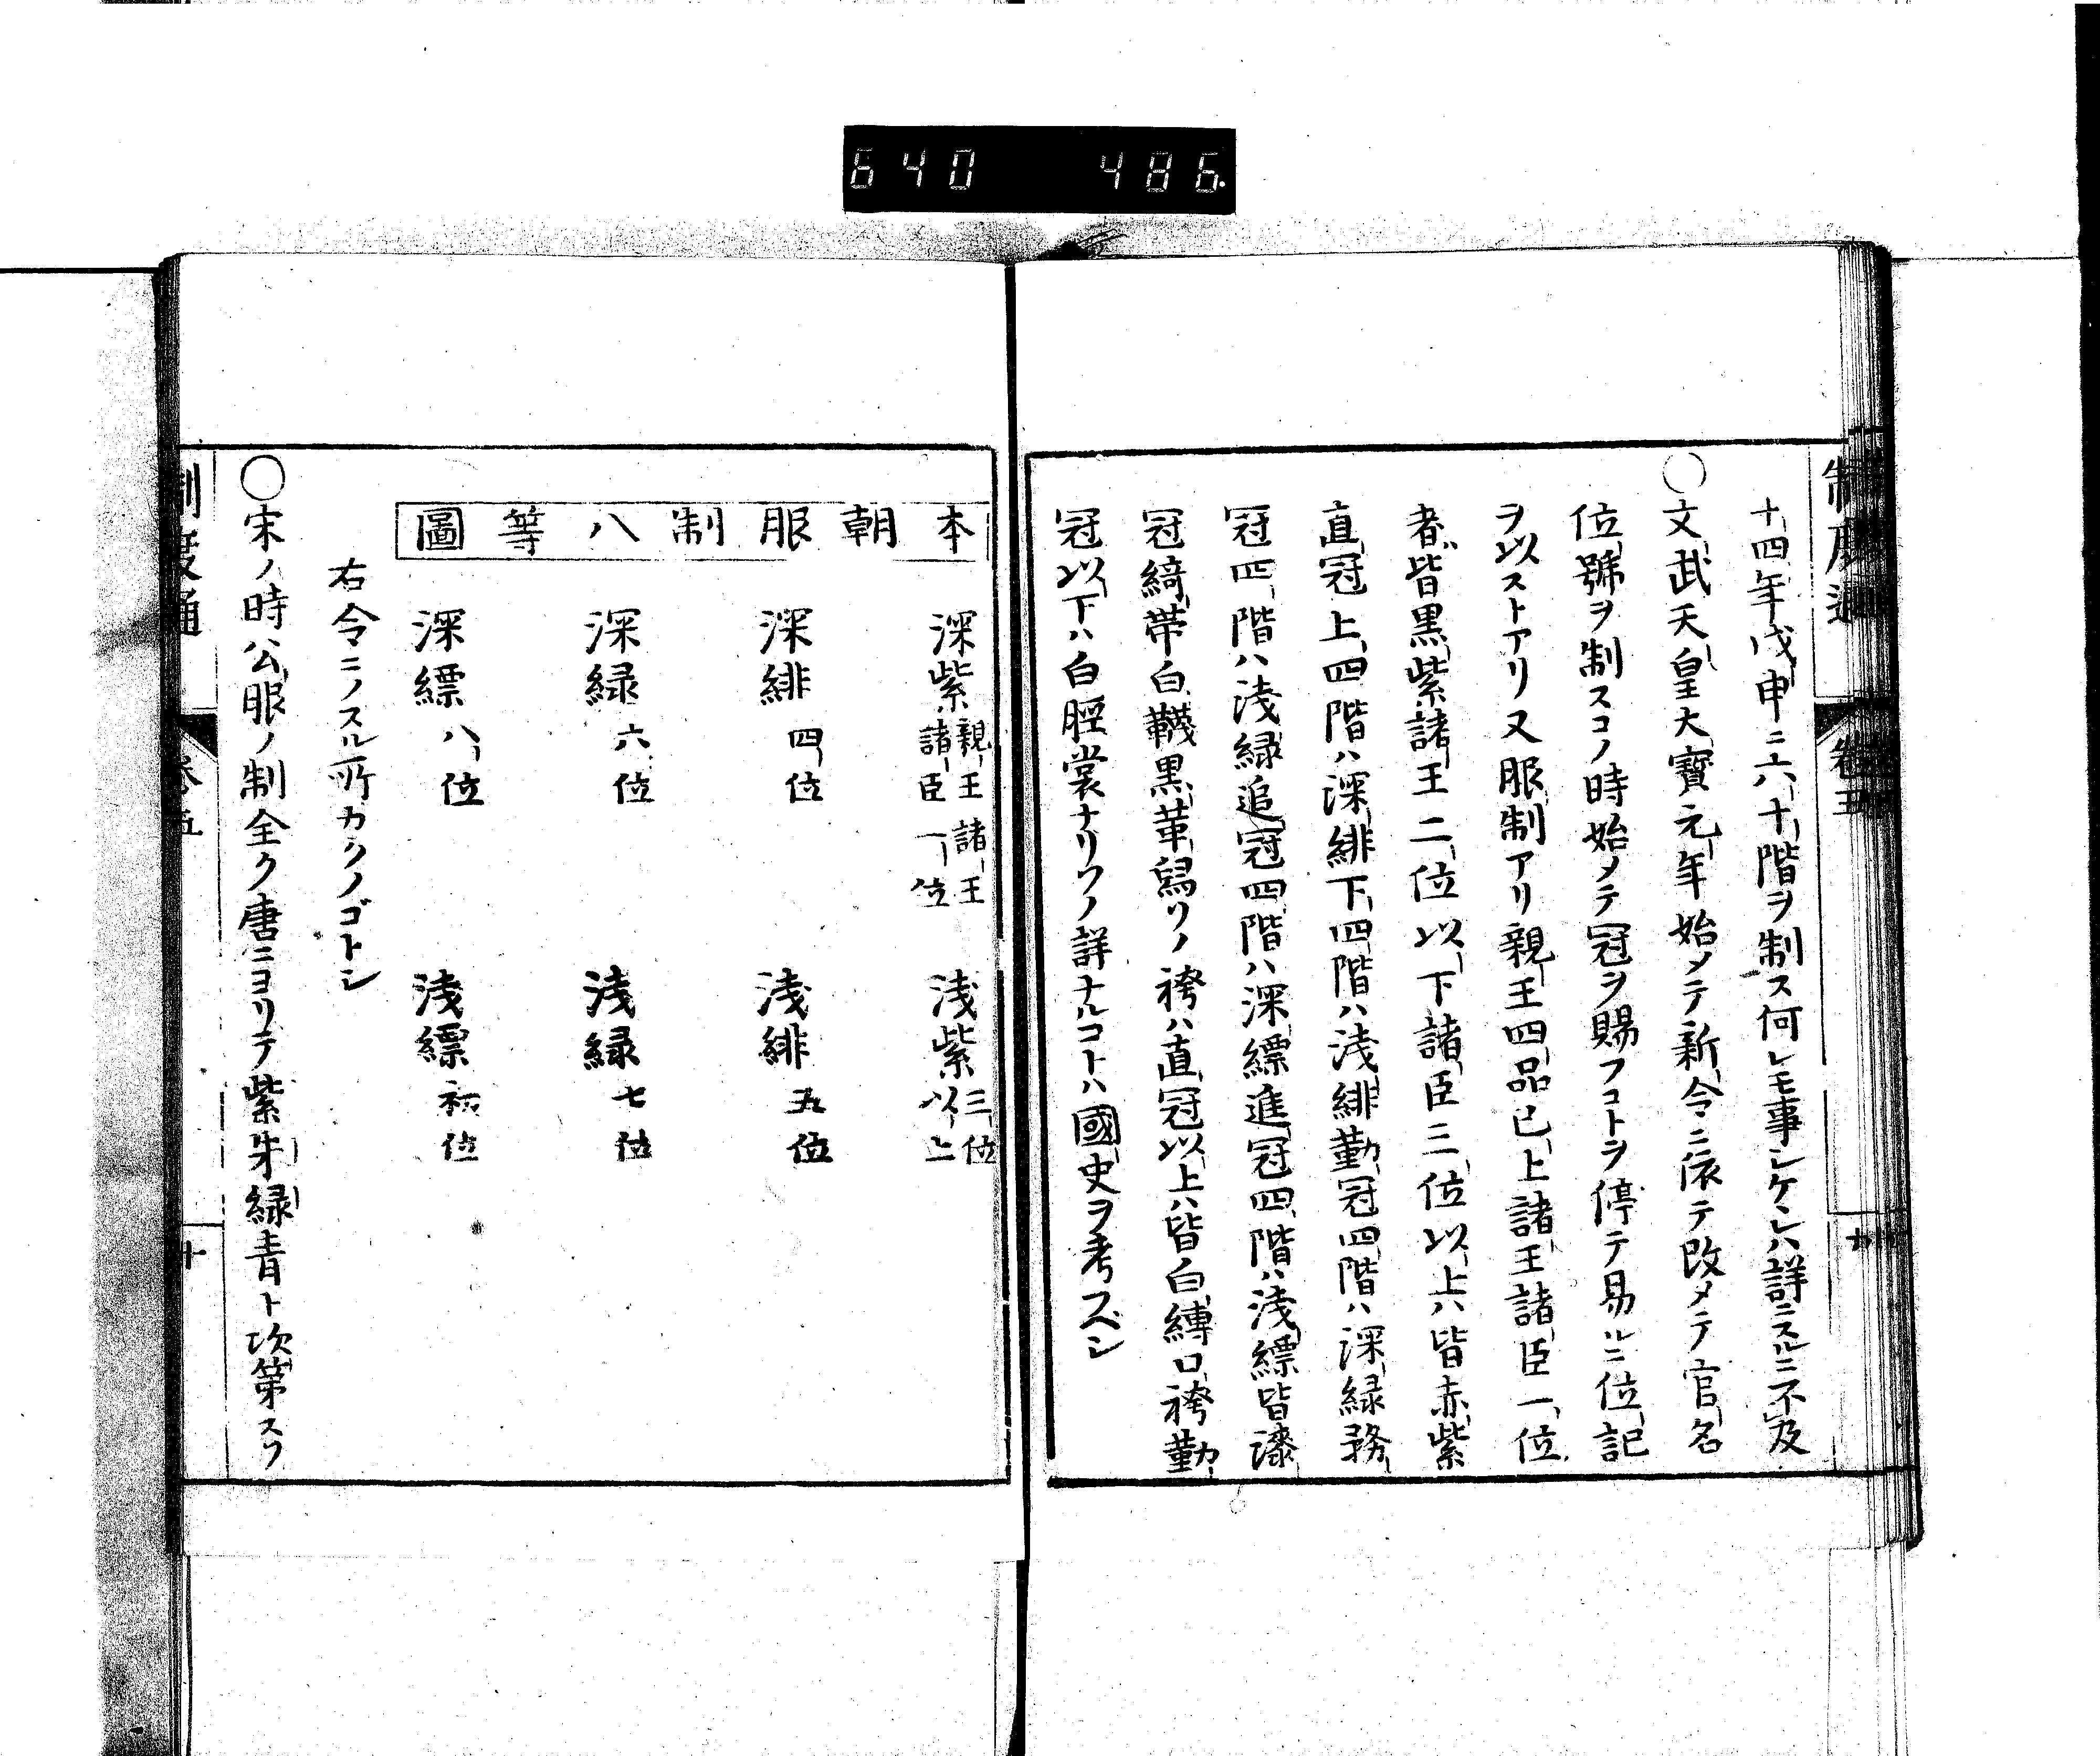 640 486
制度通 卷五 九
十四年戊申ニ六十階ヲ制ス何レモ事シケヽレハ詳ニスルニ不及
〇文武天皇大寶元年始メテ新令ニ依テ改メテ官名
位號ヲ制スコノ時始メテ冠ヲ賜フコトヲ停テ易ルニ位記
ヲ以ストアリ又服制アリ親王四品已上諸王諸臣一位
者皆黒紫諸王二位以下諸臣三位以上ハ皆赤紫
直冠上四階ハ深緋下四階ハ浅緋勤冠四階ハ深緑務
冠四階ハ浅緑追冠四階ハ深縹進冠四階ハ浅縹皆漆
冠綺帯白韈黒革舄ソノ袴ハ直冠以上ハ皆白縛口袴勤
冠以下ハ白脛裳ナリソノ詳ナルコトハ國史ヲ考フベシ
本朝服制八等圖
深紫 親王諸王諸臣一位 浅紫 三位以上
深緋 四位 浅緋 五位
深緑 六位 浅緑 七位
深縹 八位 浅縹 初位
右令ニノスル所カクノゴトシ
〇宋ノ時公服ノ制全ク唐ニヨリテ紫朱緑青ト次第スソ
制度通 卷五 十